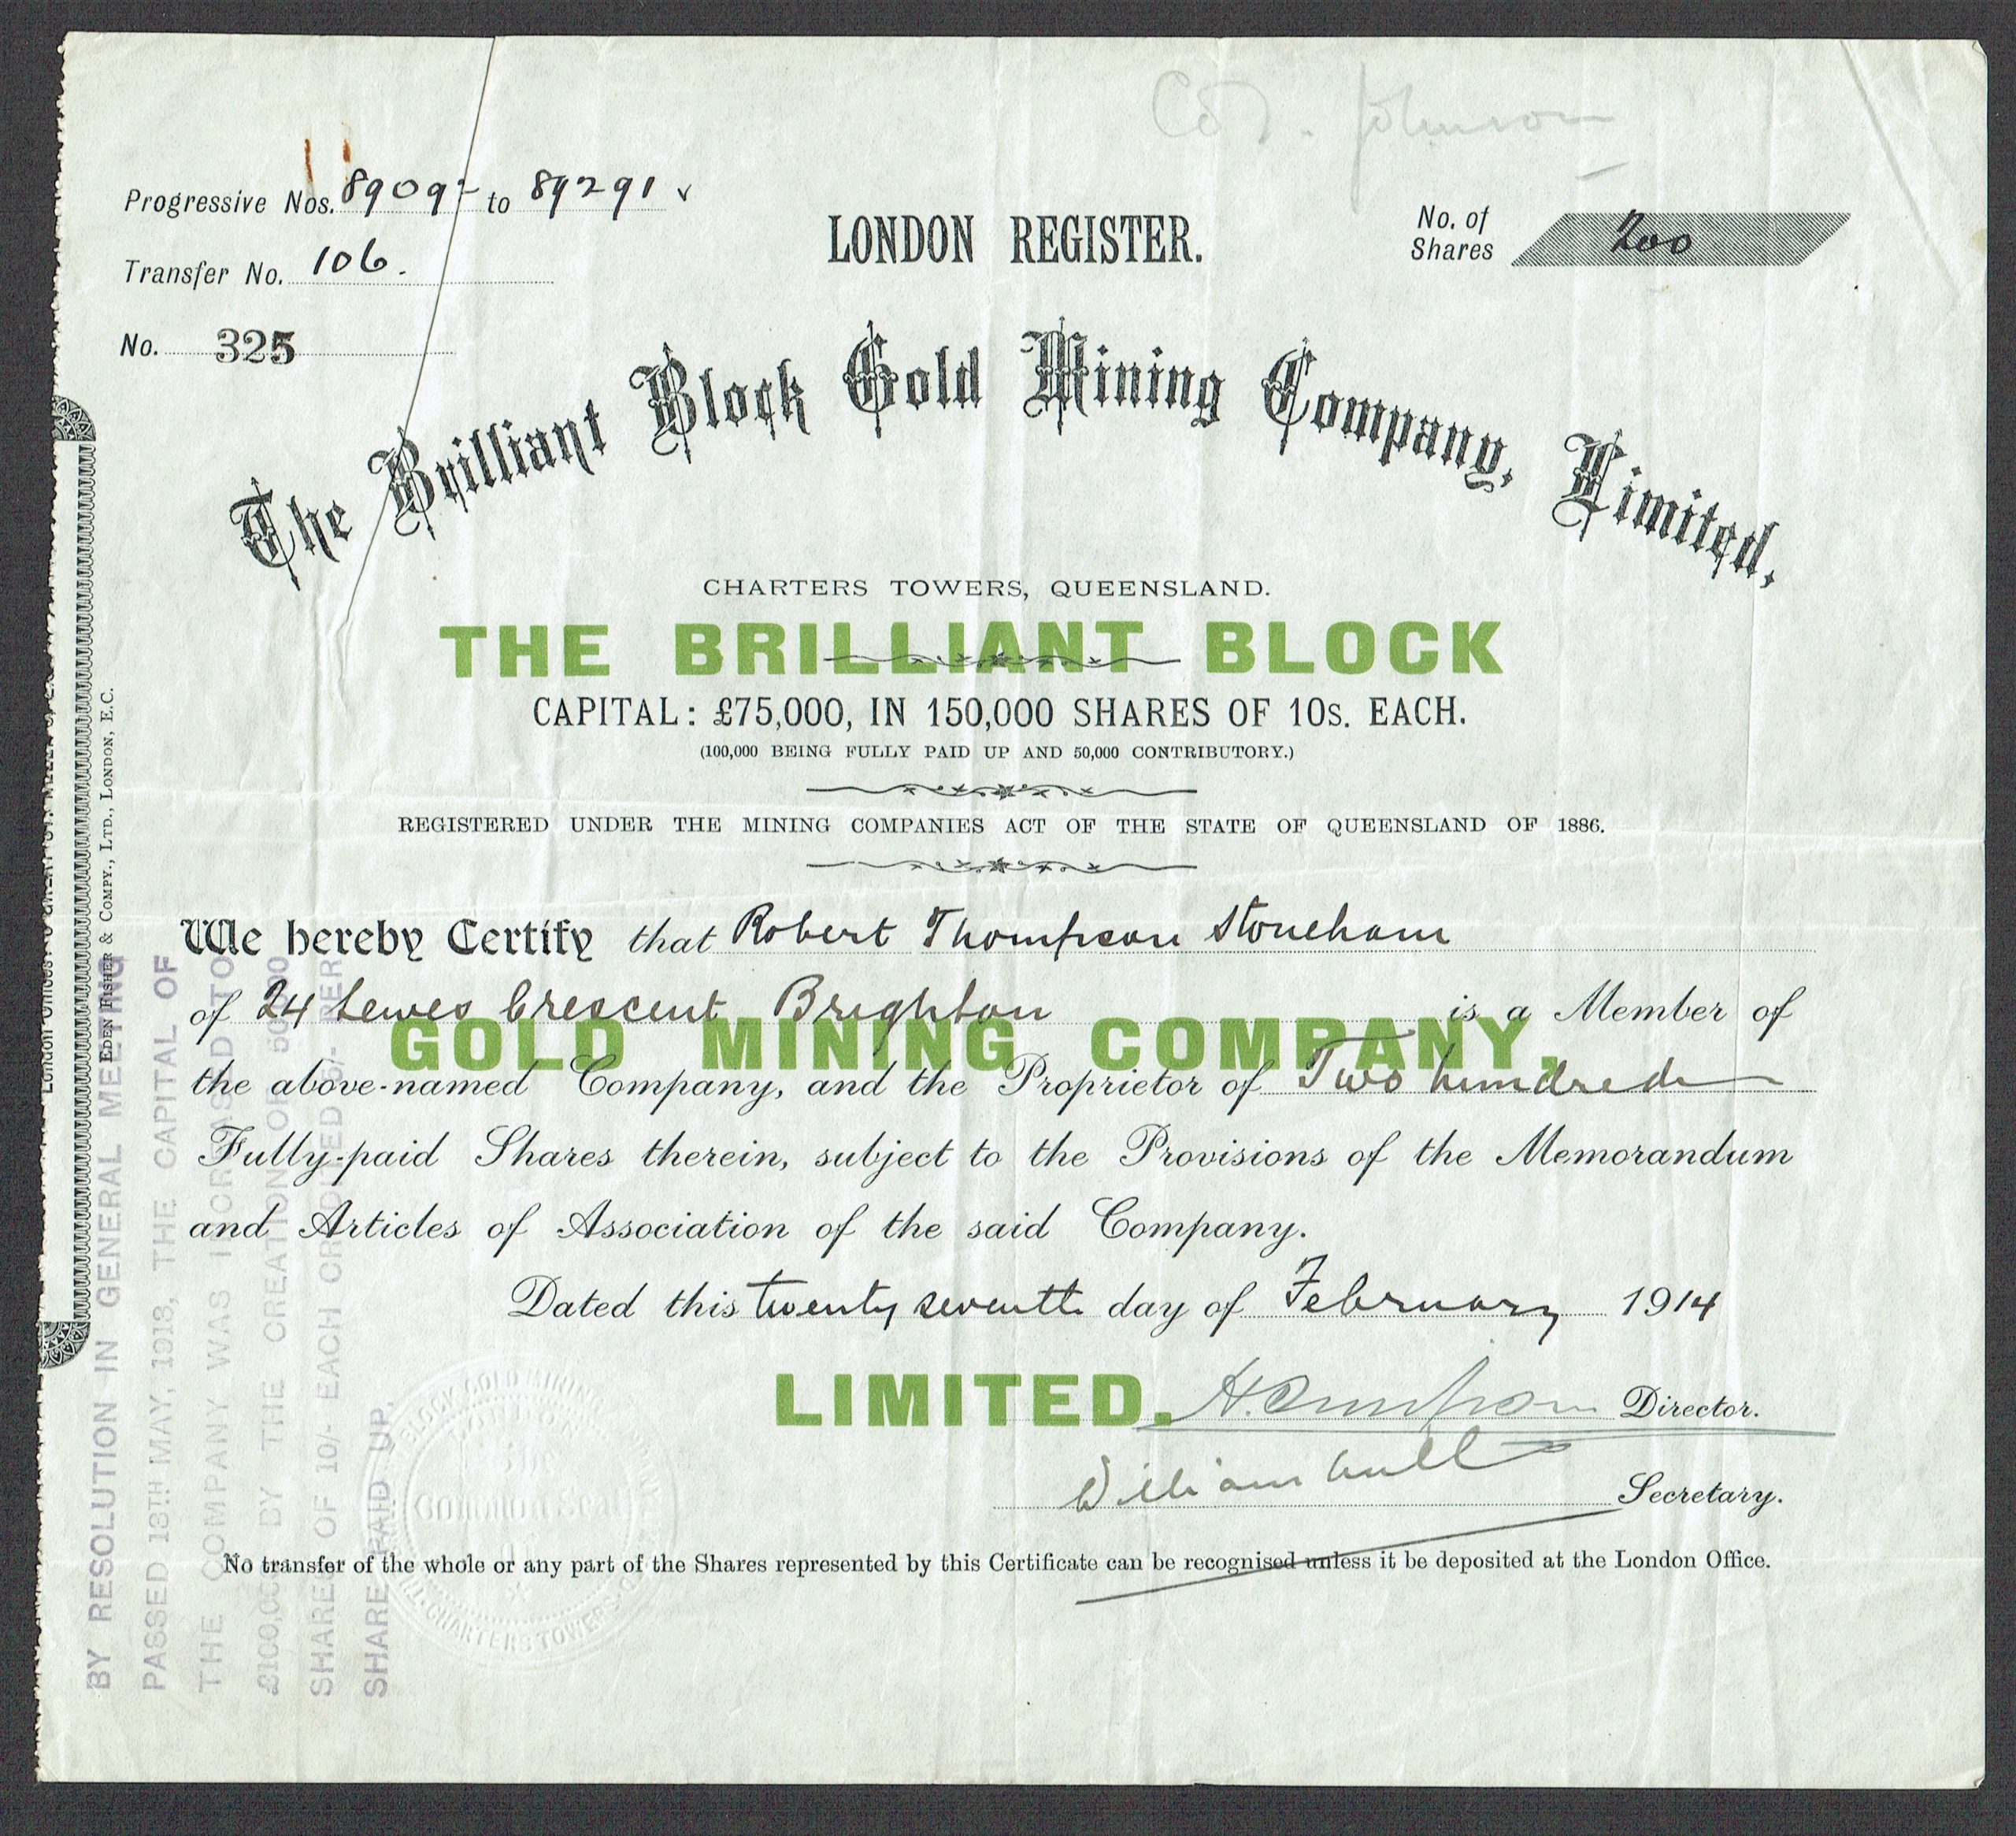 Progressive Nos. 89092 to 89291
Transfer No. 106.
No. 325
LONDON REGISTER.
No. of
Shares
200
Johnson
The Brilliant Block Gold Mining Company, Limited,
CHARTERS TOWERS, QUEENSLAND.
THE BRILLIANT BLOCK
CAPITAL: £75,000, IN 150,000 SHARES OF 10s. EACH.
(100,000 BEING FULLY PAID UP AND 50,000 CONTRIBUTORY.)
REGISTERED UNDER THE MINING COMPANIES ACT OF THE STATE OF QUEENSLAND OF 1886.
We hereby Certify that Robert Thompson Stoneham
of 24 Lewes Crescent Brighton is a Member of
GOLD MINING COMPANY,
the above-named Company, and the Proprietor of Two hundred
Fully-paid Shares therein, subject to the Provisions of the Memorandum
and Articles of Association of the said Company.
Dated this twenty seventh day of February 1914
LIMITED.
Director.
William Secretary.
No transfer of the whole or any part of the Shares represented by this Certificate can be recognised unless it be deposited at the London Office.
EDEN FISHER & COMPY., LTD., LONDON, E.C.
BY RESOLUTION IN GENERAL MEETING
PASSED 13TH MAY, 1913, THE CAPITAL OF
THE COMPANY WAS INCREASED TO
£100,000 BY THE CREATION OF 50,000
SHARES OF 10/- EACH CREDITED 5/- PER
SHARE PAID UP.
BLOCK GOLD MINING
The
Common Seal
CHARTERS TOWERS